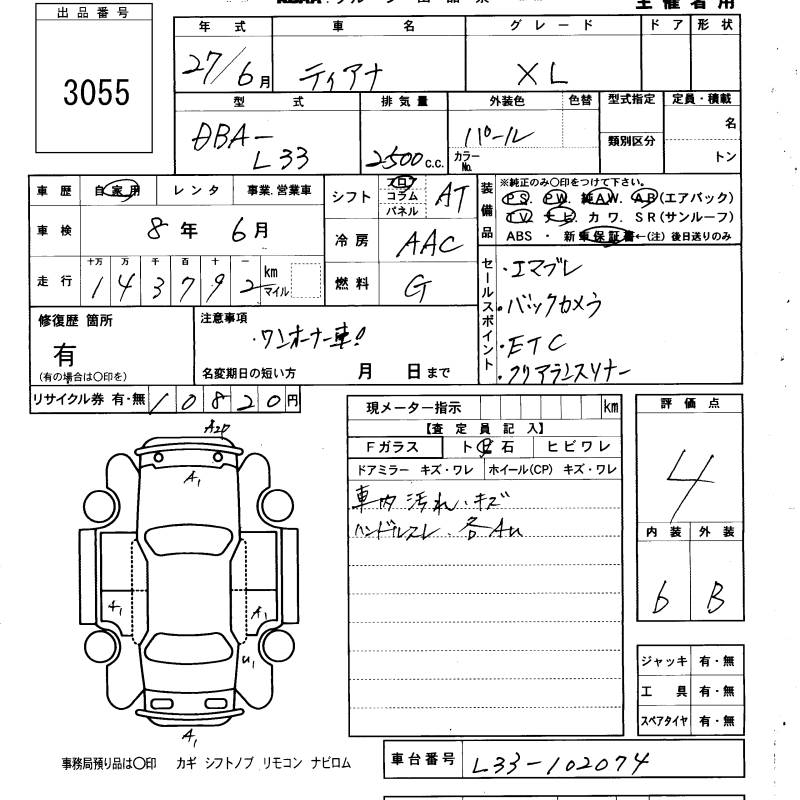 主催者用
出品番号
3055
年式 車名 グレード ドア 形状
27/6月 ティアナ XL
型式 排気量 外装色 色替 型式指定 定員・積載
DBA-L33 2500c.c. パール
カラーNo. 類別区分 名
トン
車歴 自家用 レンタ 事業.営業車
車検 8年 6月
走行 十万 万 千 百 十 一
143792 km マイル
シフト フロア コラム パネル AT
冷房 AAC
燃料 G
装備品
※純正のみ〇印をつけて下さい。
PS. PW. 純AW. AB(エアバック)
TV. ナビ. カワ. SR(サンルーフ)
ABS ・ 新車保証書←(注) 後日送りのみ
セールスポイント
・エマブレ
・バックカメラ
・ETC
・クリアランスソナー
修復歴 箇所
有
(有の場合は〇印を)
注意事項
・ワンオーナー車!
名変期日の短い方 月 日まで
リサイクル券 有・無 10820円
現メーター指示 km
【査定員記入】
Fガラス ト日石 ヒビワレ
ドアミラー キズ・ワレ ホイール(CP) キズ・ワレ
車内汚れ・キズ
ハンドルスレ. 各Au
評価点
4
内装 外装
6 B
A1
A1
A1
u1
A1
ジャッキ 有・無
工具 有・無
スペアタイヤ 有・無
事務局預り品は〇印 カギ シフトノブ リモコン ナビロム
車台番号 L33-102074